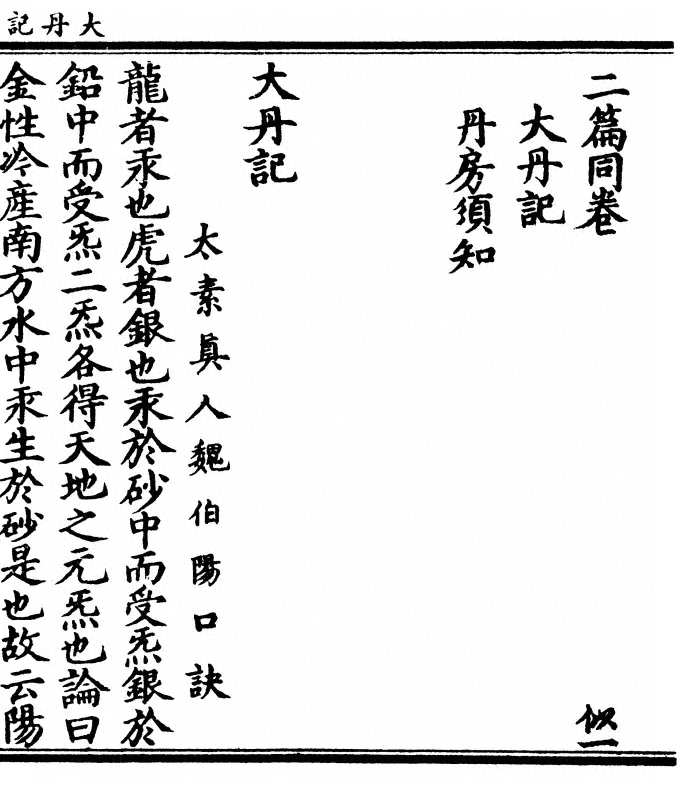 大丹記
二篇同卷 似一
大丹記
丹房須知
大丹記
太素眞人魏伯陽口訣
龍者汞也虎者銀也汞於砂中而受炁銀於
鉛中而受炁二炁各得天地之元炁也論曰
金性冷產南方水中汞生於砂是也故云陽